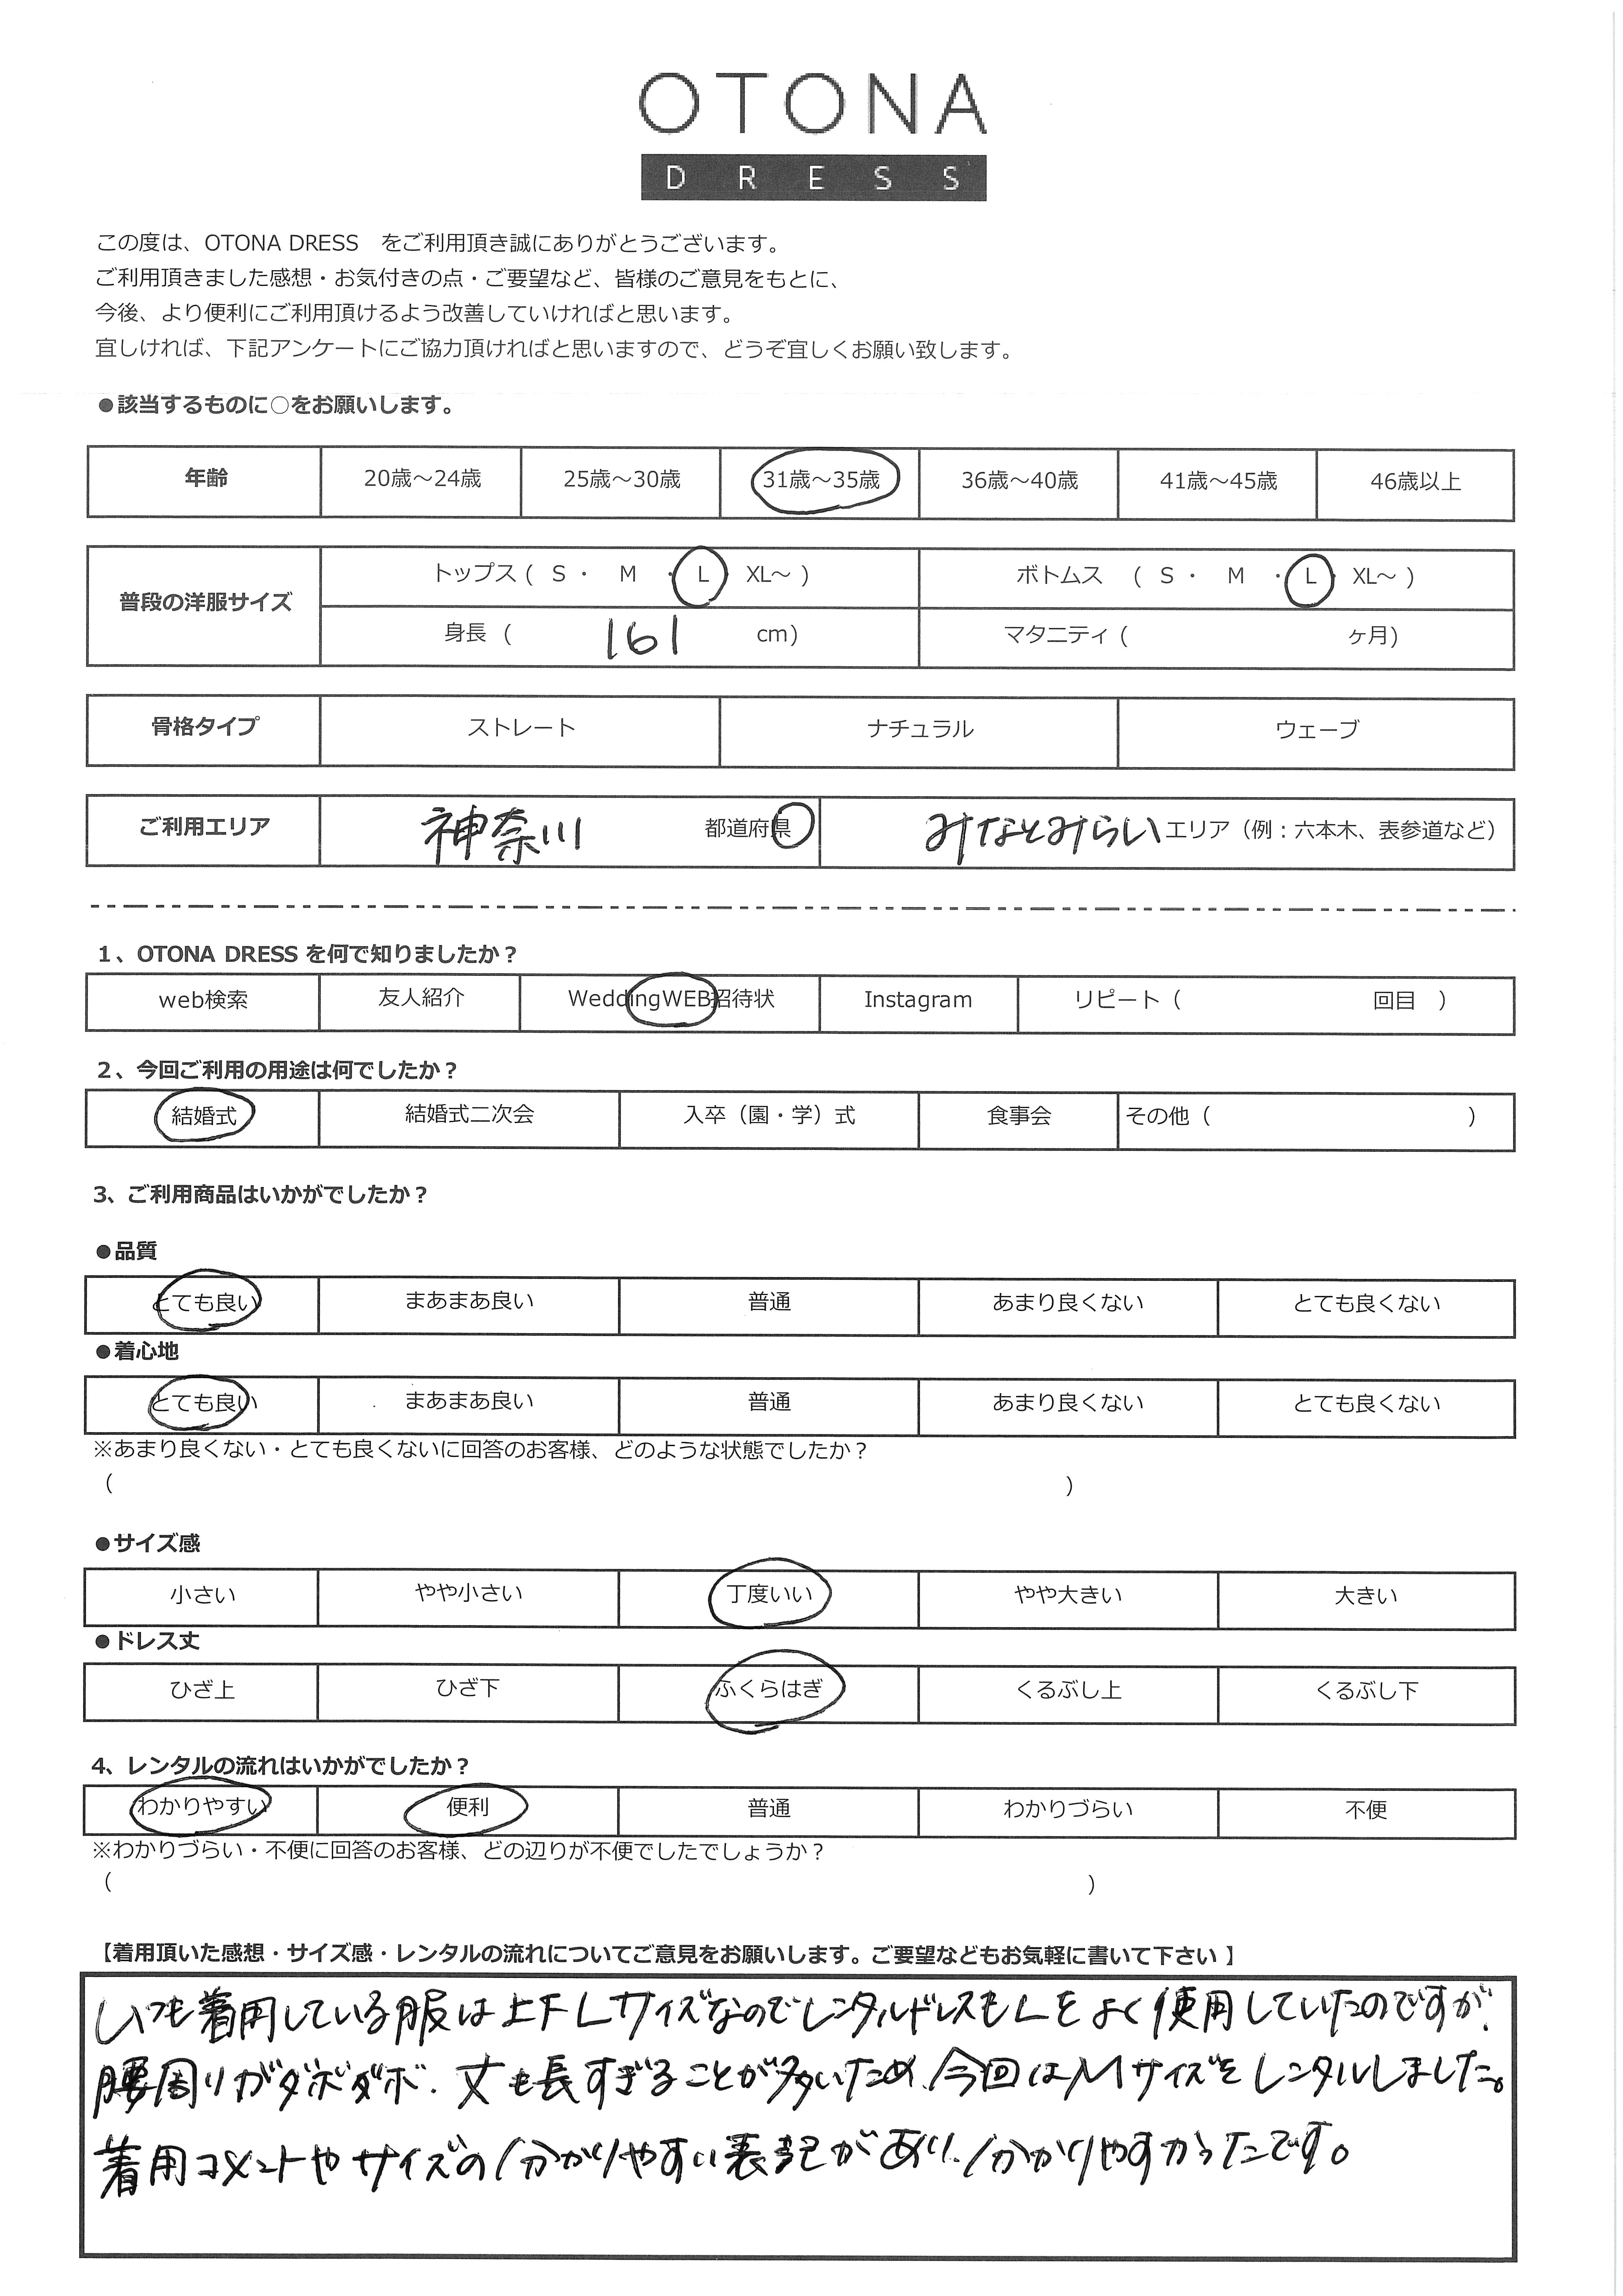 OTONA
DRESS
この度は、OTONA DRESS　をご利用頂き誠にありがとうございます。
ご利用頂きました感想・お気付きの点・ご要望など、皆様のご意見をもとに、
今後、より便利にご利用頂けるよう改善していければと思います。
宜しければ、下記アンケートにご協力頂ければと思いますので、どうぞ宜しくお願い致します。
●該当するものに○をお願いします。
年齢 20歳～24歳 25歳～30歳 31歳～35歳 36歳～40歳 41歳～45歳 46歳以上
普段の洋服サイズ トップス ( S ・ M ・ L XL～ ) ボトムス ( S ・ M ・ L XL～ )
身長 ( 161 cm) マタニティ ( ヶ月)
骨格タイプ ストレート ナチュラル ウェーブ
ご利用エリア 神奈川 都道府県 みなとみらい エリア（例：六本木、表参道など）
1、OTONA DRESS を何で知りましたか？
web検索 友人紹介 WeddingWEB招待状 Instagram リピート（ 回目 ）
2、今回ご利用の用途は何でしたか？
結婚式 結婚式二次会 入卒（園・学）式 食事会 その他（ ）
3、ご利用商品はいかがでしたか？
●品質
とても良い まあまあ良い 普通 あまり良くない とても良くない
●着心地
とても良い まあまあ良い 普通 あまり良くない とても良くない
※あまり良くない・とても良くないに回答のお客様、どのような状態でしたか？
（ ）
●サイズ感
小さい やや小さい 丁度いい やや大きい 大きい
●ドレス丈
ひざ上 ひざ下 ふくらはぎ くるぶし上 くるぶし下
4、レンタルの流れはいかがでしたか？
わかりやすい 便利 普通 わかりづらい 不便
※わかりづらい・不便に回答のお客様、どの辺りが不便でしたでしょうか？
（ ）
【着用頂いた感想・サイズ感・レンタルの流れについてご意見をお願いします。ご要望などもお気軽に書いて下さい 】
いつも着用している服は上下LサイズなのでレンタルドレスもLをよく使用していたのですが、
腰周りがダボダボ、丈も長すぎることが多いため、今回はMサイズをレンタルしました。
着用コメントやサイズの分かりやすい表記があり、分かりやすかったです。